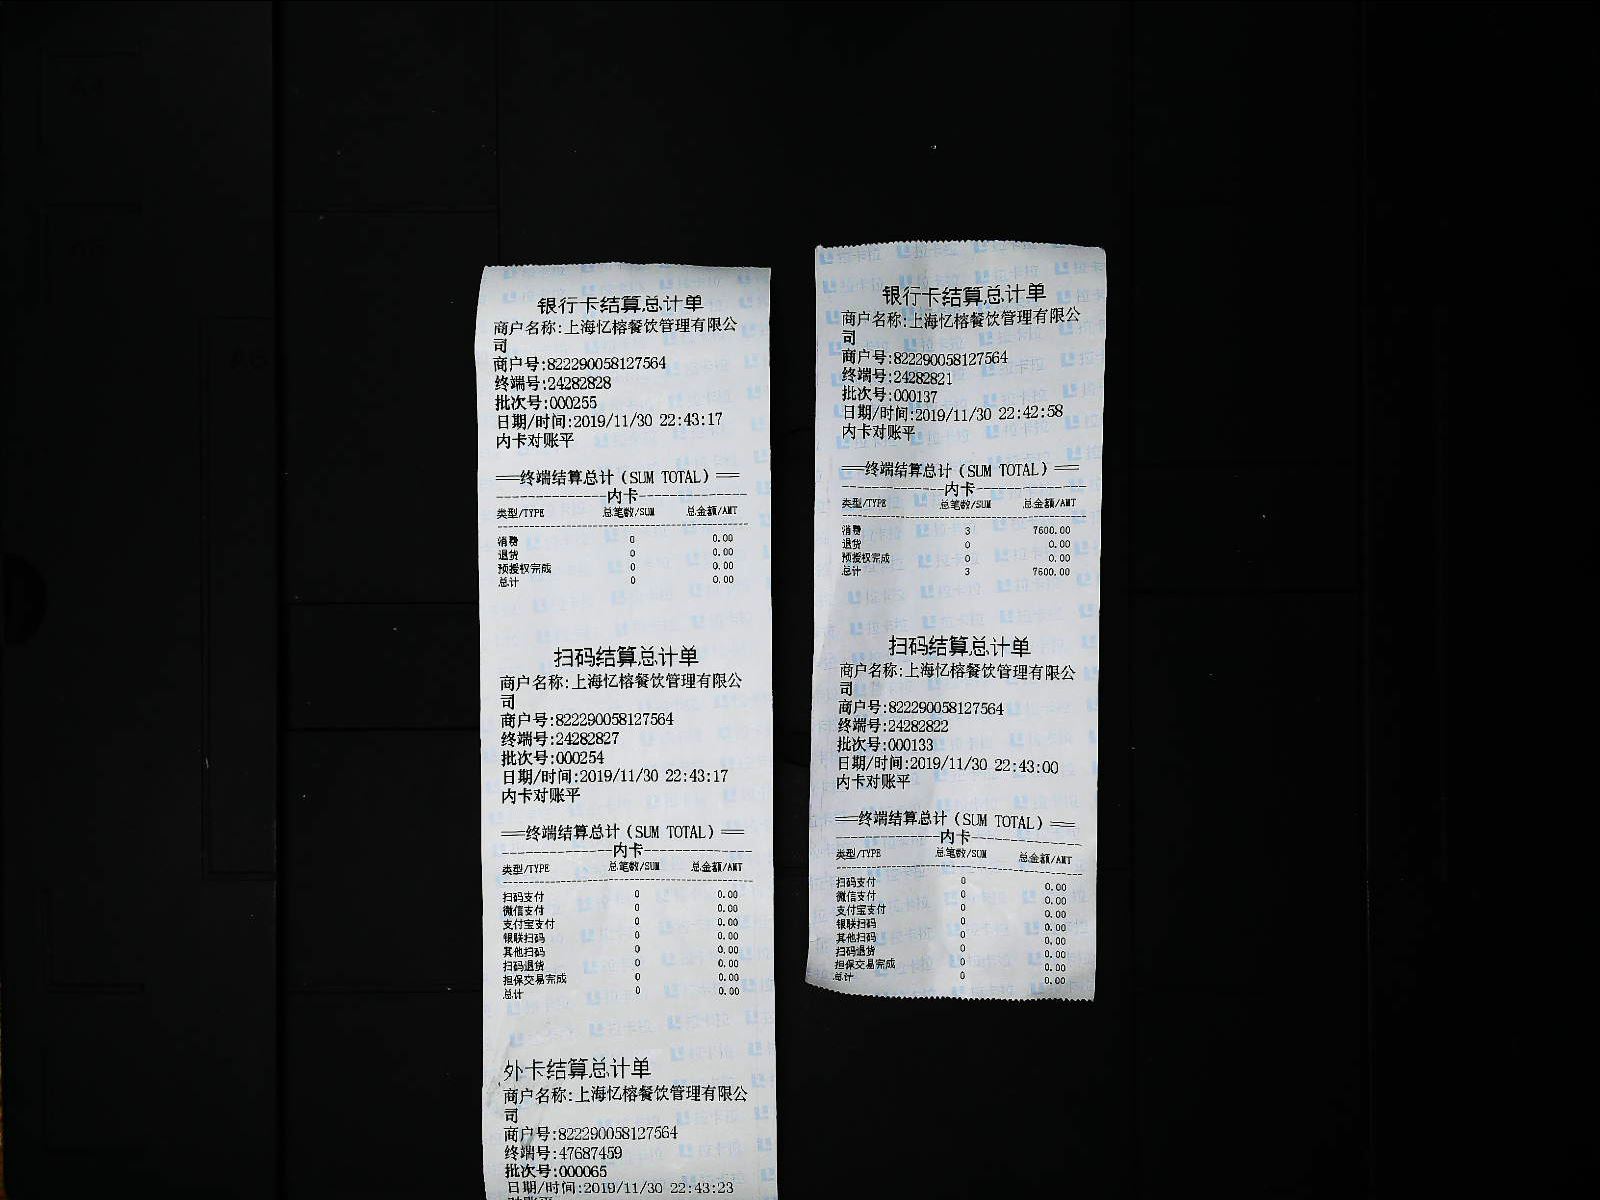 银行卡结算总计单
商户名称:上海忆榕餐饮管理有限公
司
商户号:822290058127564
终端号:24282828
批次号:000255
日期/时间:2019/11/30 22:43:17
内卡对账平
══终端结算总计(SUM TOTAL)══
----------------内卡----------------
类型/TYPE 总笔数/SUM 总金额/AMT
消费 0 0.00
退货 0 0.00
预授权完成 0 0.00
总计 0 0.00
扫码结算总计单
商户名称:上海忆榕餐饮管理有限公
司
商户号:822290058127564
终端号:24282827
批次号:000254
日期/时间:2019/11/30 22:43:17
内卡对账平
══终端结算总计(SUM TOTAL)══
----------------内卡----------------
类型/TYPE 总笔数/SUM 总金额/AMT
扫码支付 0 0.00
微信支付 0 0.00
支付宝支付 0 0.00
银联扫码 0 0.00
其他扫码 0 0.00
扫码退货 0 0.00
担保交易完成 0 0.00
总计 0 0.00
外卡结算总计单
商户名称:上海忆榕餐饮管理有限公
司
商户号:822290058127564
终端号:47687459
批次号:000065
日期/时间:2019/11/30 22:43:23
银行卡结算总计单
商户名称:上海忆榕餐饮管理有限公
司
商户号:822290058127564
终端号:24282821
批次号:000137
日期/时间:2019/11/30 22:42:58
内卡对账平
══终端结算总计(SUM TOTAL)══
----------------内卡----------------
类型/TYPE 总笔数/SUM 总金额/AMT
消费 3 7600.00
退货 0 0.00
预授权完成 0 0.00
总计 3 7600.00
扫码结算总计单
商户名称:上海忆榕餐饮管理有限公
司
商户号:822290058127564
终端号:24282822
批次号:000133
日期/时间:2019/11/30 22:43:00
内卡对账平
══终端结算总计(SUM TOTAL)══
----------------内卡----------------
类型/TYPE 总笔数/SUM 总金额/AMT
扫码支付 0 0.00
微信支付 0 0.00
支付宝支付 0 0.00
银联扫码 0 0.00
其他扫码 0 0.00
扫码退货 0 0.00
担保交易完成 0 0.00
总计 0 0.00